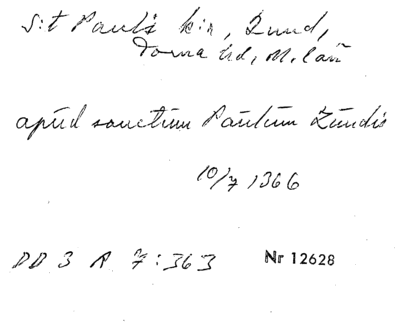 S:t Paul's kir, Lund,
Torna hd, M. län
apud sanctum Paulum Lundis
10/7 1366
DD 3 A 7:363 Nr 12628